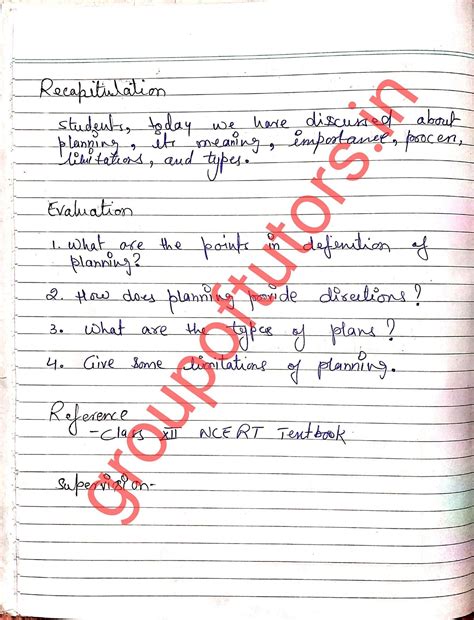 Recapitulation
Students, today we have discussed about
planning, its meaning, importance, process,
limitations, and types.
Evaluation
1. What are the points in defenition of
planning?
2. How does planning provide directions?
3. What are the types of plans?
4. Give some limitations of planning.
Reference
-Class XII NCERT Textbook
Supervision-
groupoftutors.in